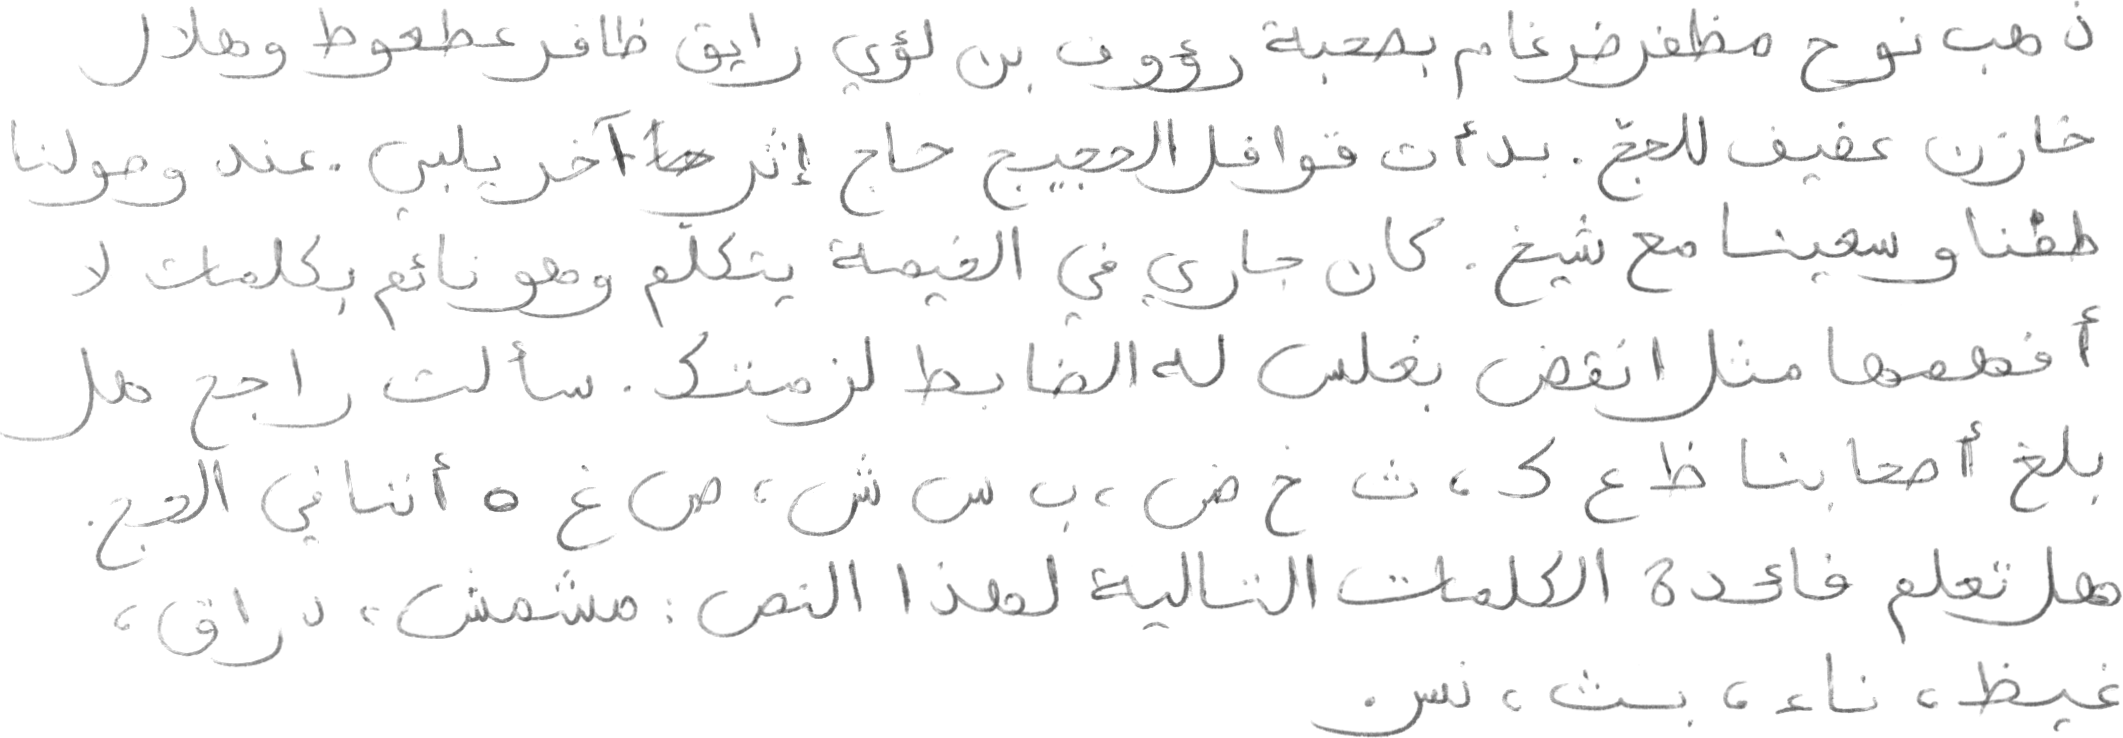 ذهب نوح مظفر ضرغام بصحبة رؤوف بن لؤي رايق ظافر عطعوط وهلال
خازن عفيف للحجّ. بدأت قوافل الحجيج حاج إثر آخر يلبي. عند وصولنا
طفنا وسعينا مع شيخ. كان جاري في الخيمة يتكلّم وهو نائم بكلمات لا
أفهمها مثل انقض بغلس له الضابط لزمتك. سألت راجح هل
بلغ أصحابنا ظ ع ك، ث خ ض، ب س ش، ص غ ه أننا في الحج.
هل تعلم فائدة الكلمات التالية لهذا النص: مشمش، دراق،
غيظ، ناء، بث، نس.